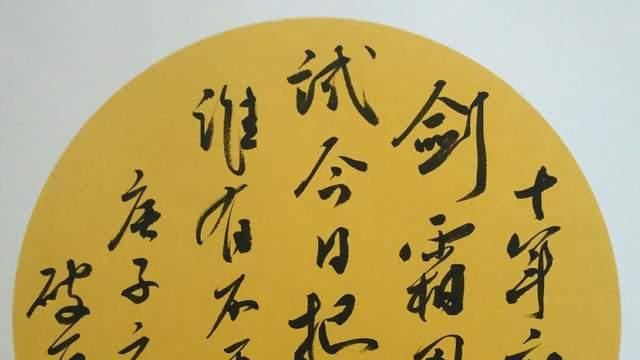 十年
剑霜
试今日把
谁有不
庚子
破